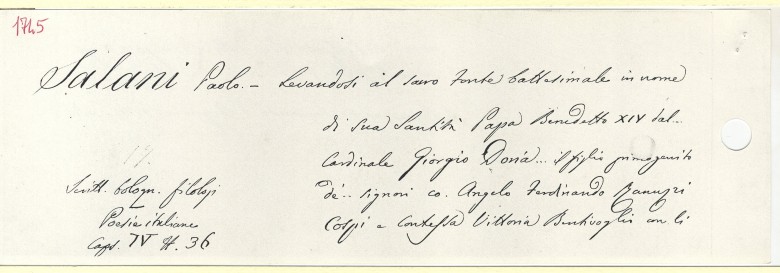 1745
Salani Paolo. - Levandosi al sacro fonte battesimale in nome
di sua Santità Papa Benedetto XIV dal..
Cardinale Giorgio Doria... il figlio primogenito
de'.. signori co. Angelo Ferdinando Ranuzzi
Cospi e contessa Vittoria Bentivoglio con li
17.
Scritt. bologn. filolopi
Poesie italiane
Caps. IV N. 36